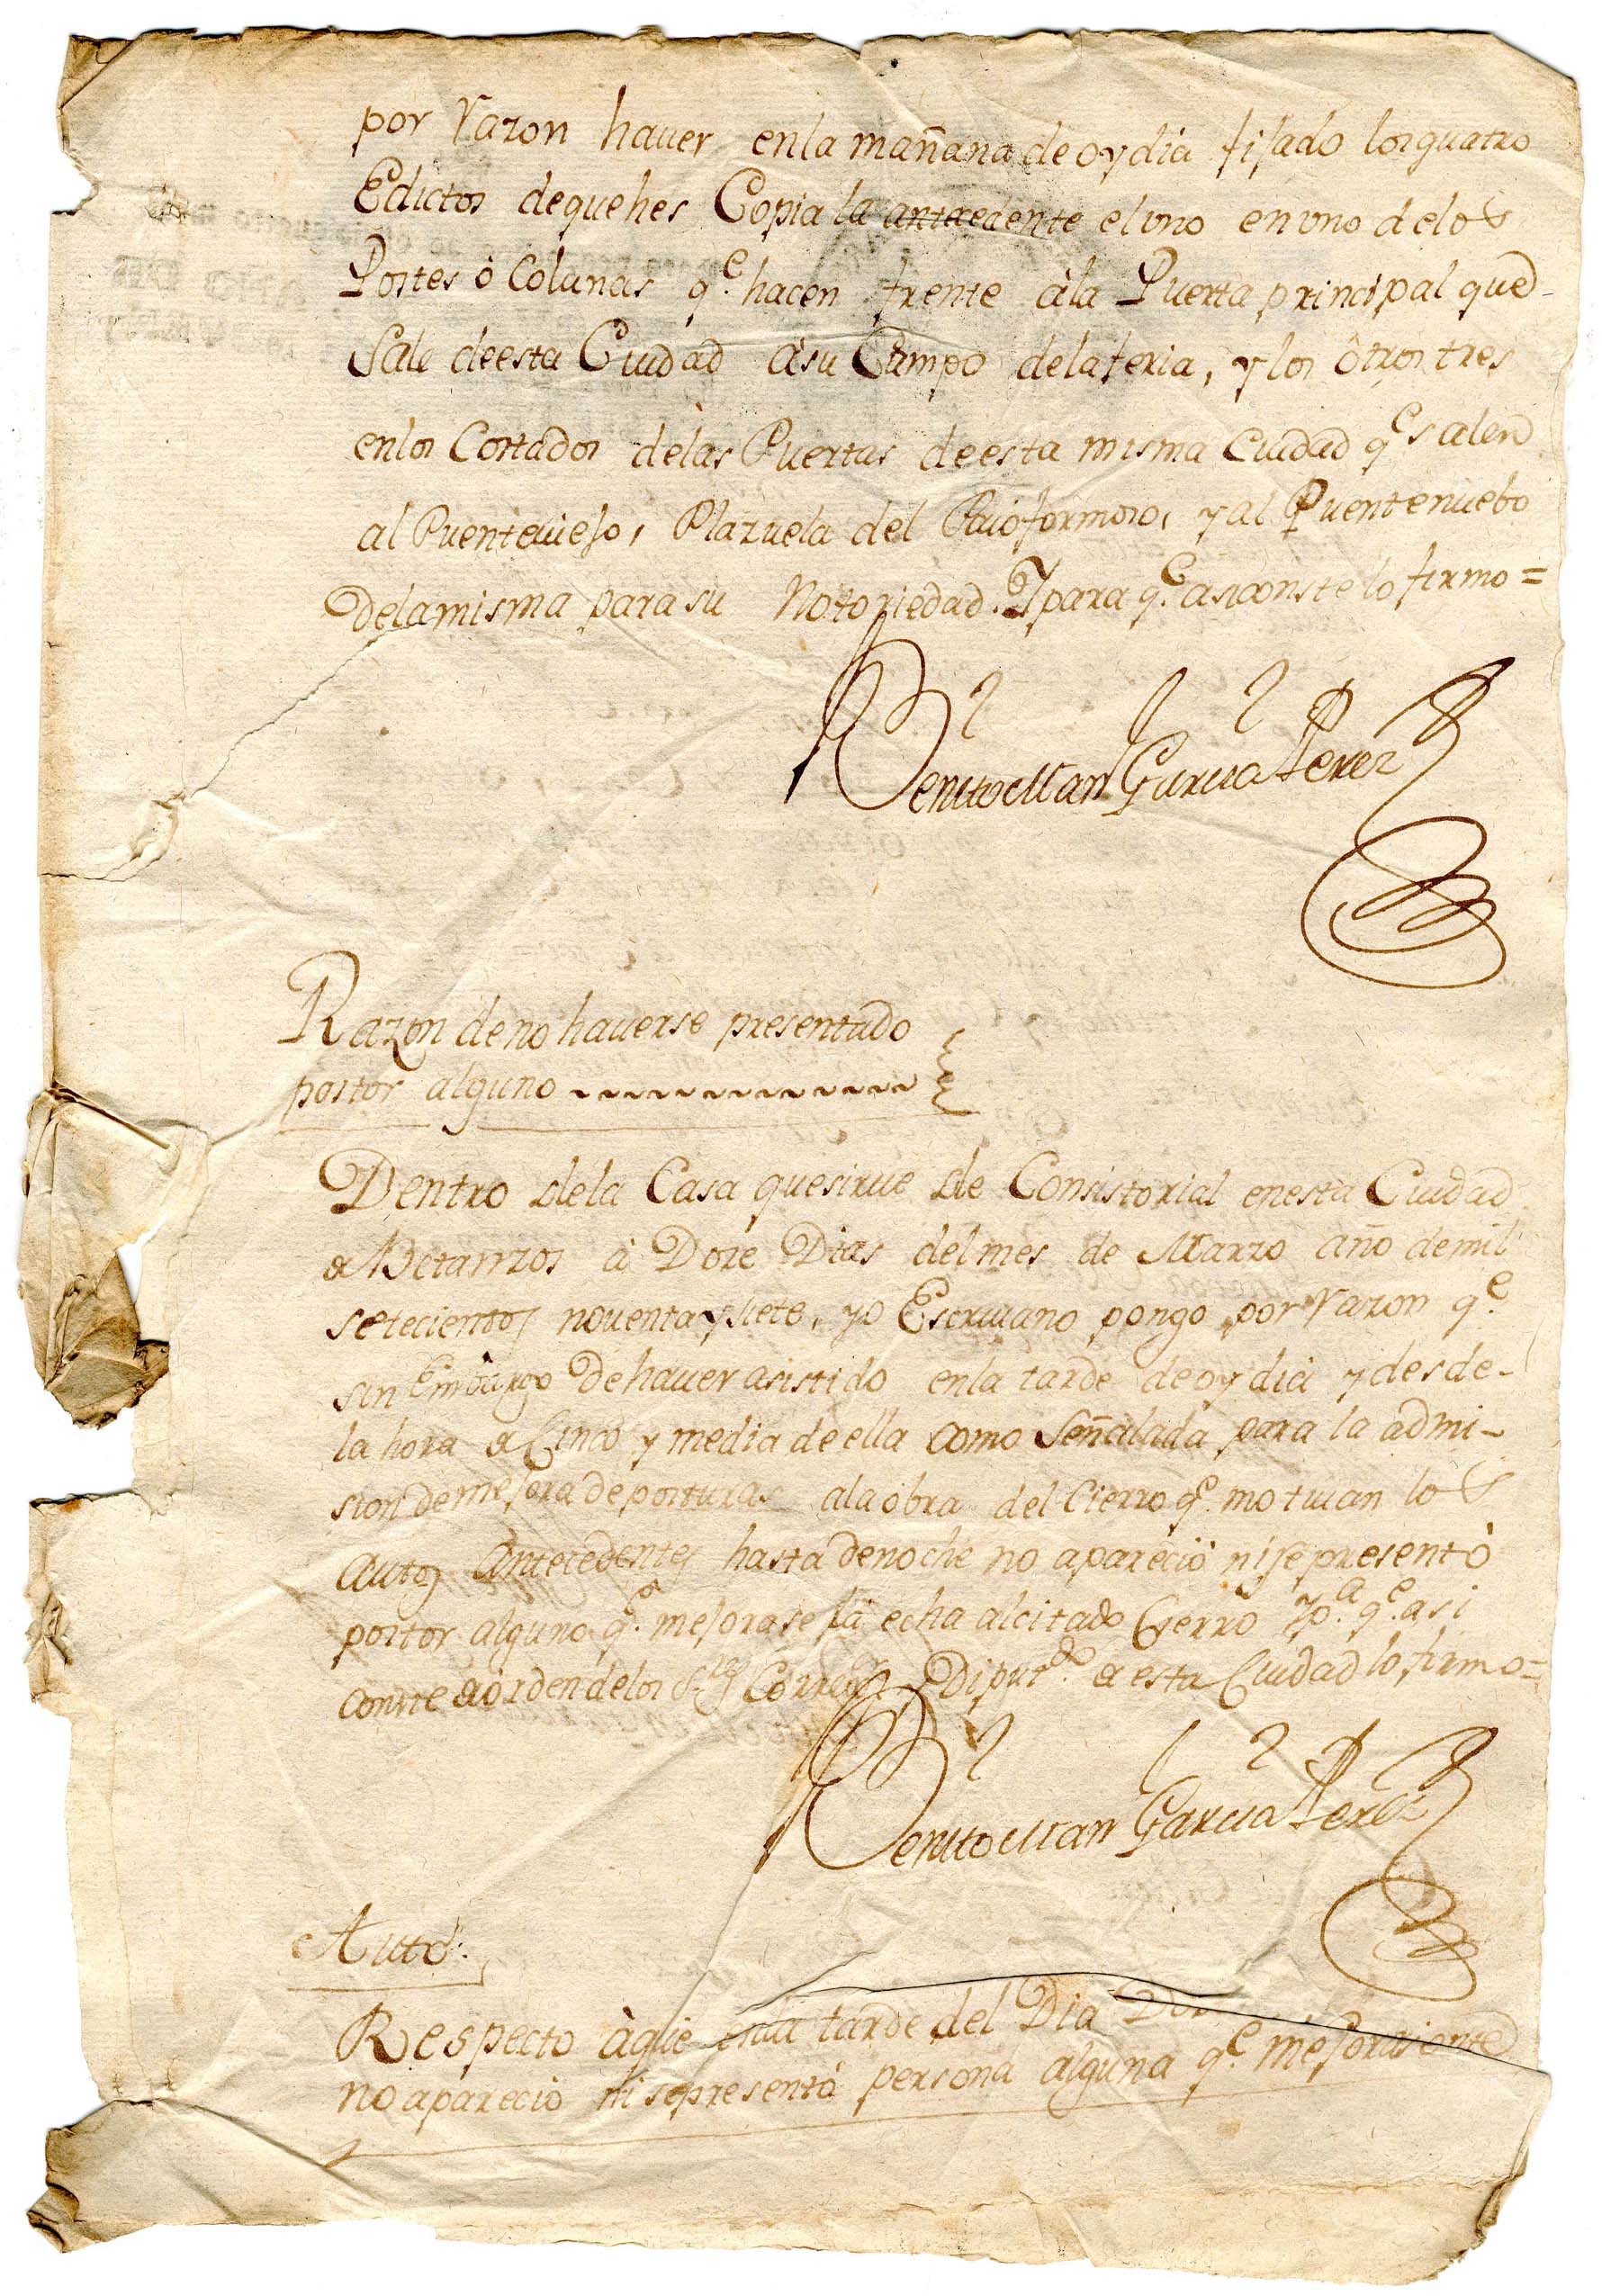 por razon hauer enla mañana de oy dia fijado los quatro
Edictos deque hes Copia la antecedente el uno en uno delos
Postes ó Colunas q.e hacen frente àla Puerta principal que
Sale deesta Ciudad àsu Campo delaferia, y los ôtros tres
enlos Costados delas Puertas deesta misma Ciudad q.e salen
al PuentevieJo, Plazuela del y al Puentenuebo
delamisma para su Notoriedad. Y para q.e asiconste lo firmo =
Benito Man Garcia Perez
Razon deno hauerse presentado
postor alguno
Dentro dela Casa quesirue de Consistorial enesta Ciudad
de Betanzos à Doze Dias delmes de Marzo año demil
setecientos nouenta y siete, yo Escriuano pongo por razon q.e
sin Embargo dehauer asistido enla tarde de oy dia y desde
la hora de Cinco y media de ella como Señalada para la admi-
sion demeJora deposturas ala obra del Cierro q.e motiuan los
autos antecedentes hasta denoche no apareciò nisepresentò
postor alguno q.e meJorase la echa alcitado Cierro Yp.a q.e asi
conste de òrden delos S.res Corregor y Diput.do de esta Ciudad lo firmo =
Benito Man Garcia Perez
Auto
Respecto àque enla tarde del Dia
no apareció ni sepresentò persona alguna q.e